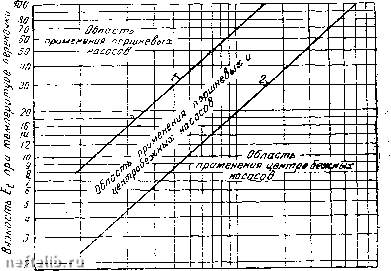 100
70
60
50
40
30
20
16
14
12
10
9
8
7
6
5
4
3
Вязкость Et при температуре перекачки
Область
применения поршневых
насосов
1
Область применения поршневых и
центробежных насосов
2
Область
применения центробежных
насосов
neftelib.ru